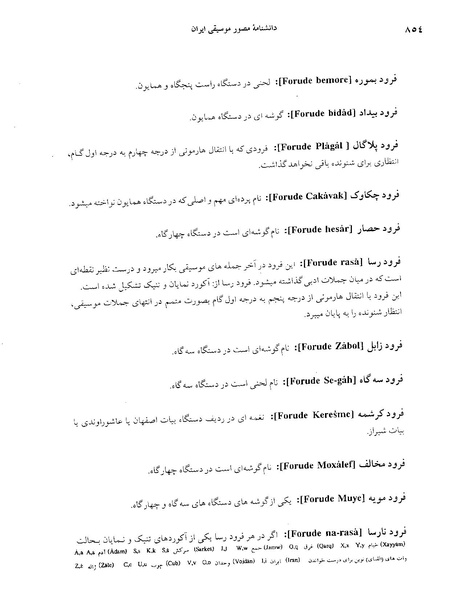 دانشنامهٔ مصور موسیقی ایران
٨٥٤
فرود بموره [Forude bemore]: لحنی در دستگاه راست پنجگاه و همایون.
فرود بیداد [Forude bidàd]: گوشه ای در دستگاه همایون.
فرود پلاگال [ Forude Plàgàl]: فرودی که با انتقال هارمونی از درجه چهارم به درجه اول گام،
انتظاری برای شنونده باقی نخواهد گذاشت.
فرود چکاوک [Forude Cakàvak]: نام پرده‌ای مهم و اصلی که در دستگاه همایون نواخته میشود.
فرود حصار [Forude hesàr]: نام گوشه‌ای است در دستگاه چهارگاه.
فرود رسا [Forude rasà]: این فرود در آخر جمله های موسیقی بکار میرود و درست نظیر نقطه‌ای
است که در میان جملات ادبی گذاشته میشود. فرود رسا از: آکورد نمایان و تنیک تشکیل شده است.
این فرود با انتقال هارمونی از درجه پنجم به درجه اول گام بصورت متمم در انتهای جملات موسیقی،
انتظار شنونده را به پایان میبرد.
فرود زابل [Forude Zàbol]: نام گوشه‌ای است در دستگاه سه گاه.
فرود سه گاه [Forude Se-gàh]: نام لحنی است در دستگاه سه گاه.
فرود کرشمه [Forude Kerešme]: نغمه ای در ردیف دستگاه بیات اصفهان یا عاشوراوندی یا
بیات شیراز.
فرود مخالف [Forude Moxàlef]: نام گوشه‌ای است در دستگاه چهارگاه.
فرود مویه [Forude Muye]: یکی از گوشه های دستگاه های سه گاه و چهارگاه.
فرود نارسا [Forude na-rasà]: اگر در هر فرود رسا یکی از آکوردهای تنیک و نمایان بحالت
A,a A,à آدم (Àdam) S,s K,k Š,š سرکش (Sarkeš) J,j W,w جمع (Jamw) O,q غرق (Qarq) X,x Y,y خیام (Xayyàm)
Z,ž ژاله (Žàle) C,c U,u چوب (Cub) V,v O,o وجدان (Vojdàn) I,i ایران (Iran) نوین برای درست خواندن